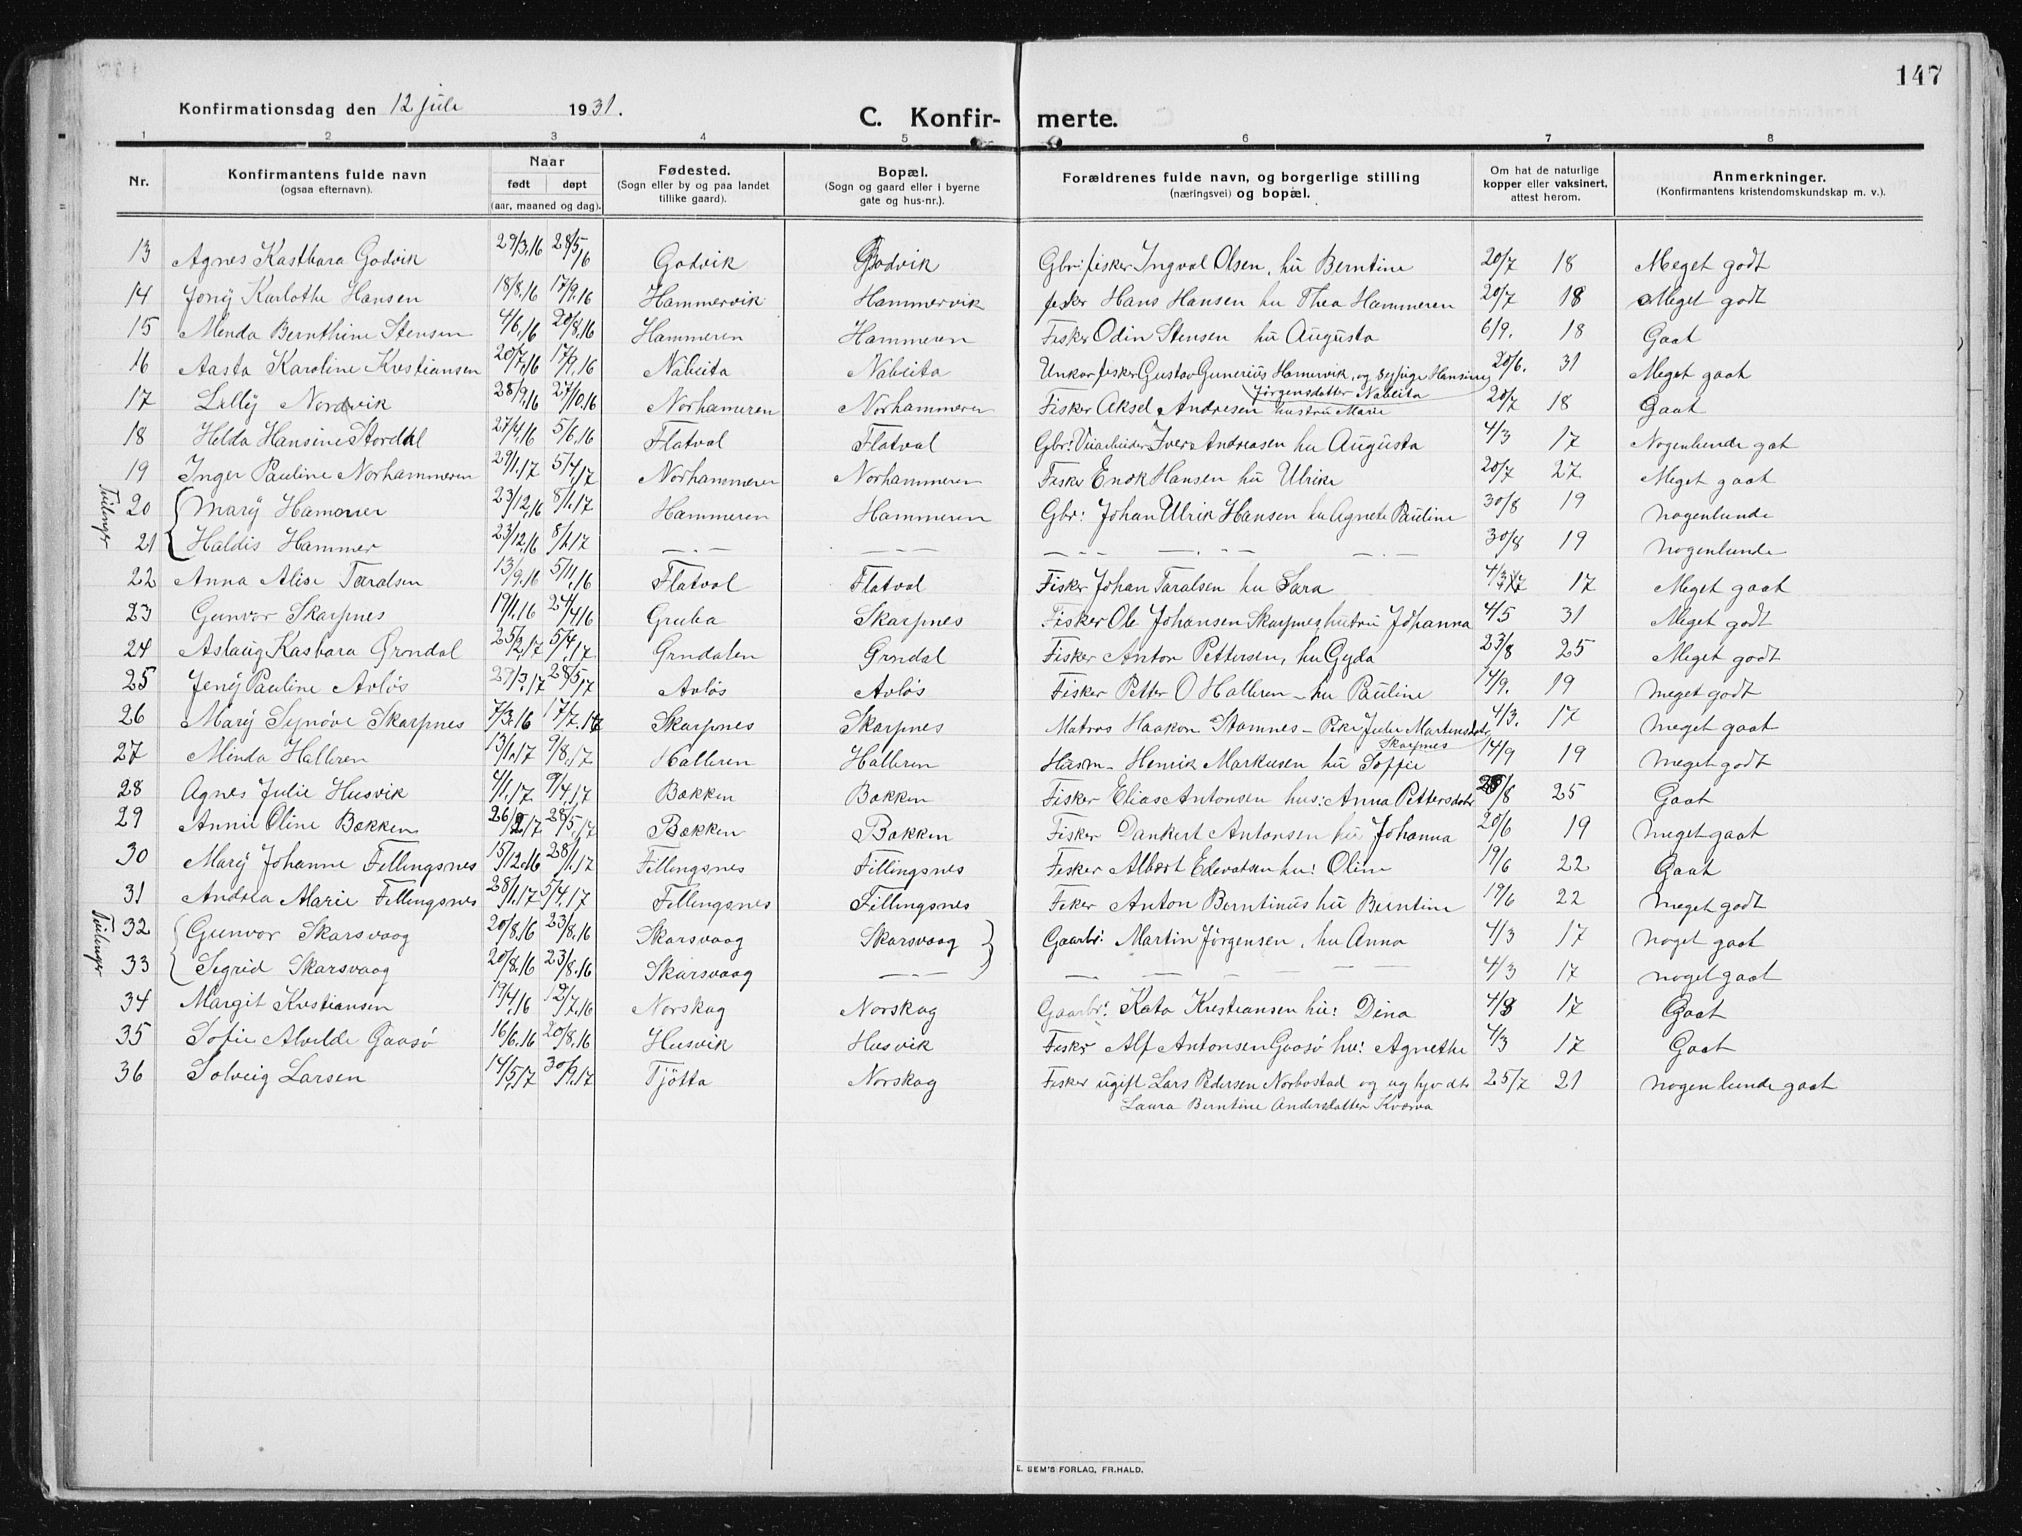 147
Konfirmationsdag den 12 juli 1931.
C. Konfir- merte.
1 2 3 4 5 6 7 8
Nr.
Konfirmantens fulde navn
(ogsaa efternavn).
Naar
født døpt
(aar, maaned og dag).
Fødested.
(Sogn eller by og paa landet
tillike gaard).
Bopæl.
(Sogn og gaard eller i byerne
gate og hus-nr.).
Forældrenes fulde navn, og borgerlige stilling
(næringsvei) og bopæl.
Om hat de naturlige
kopper eller vaksinert,
attest herom.
Anmerkninger.
(Konfirmantens kristendomskundskap m. v.).
13 Agnes Kastbara Godvik 29/3.16 28/5 16 Godvik Godvik Gbr: fisker Ingval Olsen, hu Berntine 20/7 18 Meget godt
14 Jony Karlothe Hansen 18/8.16 17/9.16 Hammervik Hammervik fisker Hans Hansen hu Thea Hammeren 20/7 18 Meget godt
15 Menda Bernthine Stensen 4/6.16 20/8.16 Hammeren Hammeren Fisker Odin Stensen hu Augusta 6/9. 18 Gaat
16 Aasta Karoline Kristiansen 20/7.16 17/9.16 Nabeita Nabeita Unkar fisker Gustav Gunerius Hamervik, og Hansine 20/6. 31 Meget gaat
Jørgensdatter Nabeita
17 Lilly Nordvik 28/9.16 27/10.16 Norhameren Norhammeren Fisker Aksel Andresen hustru Marie 20/7 18 Gaat
18 Helda Hansine Stordal 27/4.16 5/6.16 Flatval Flatval Gbr: Iver Andreasen hu Augusta 4/3 17 Nogenlunde gat
19 Inger Pauline Norhammeren 29/1.17 5/4.17 Norhammeren Norhammeren Fisker Enok Hansen hu Ulrike 20/7 27 Meget gaat
Tvilinger
20 Mary Hammer 23/12.16 8/1.17 Hammeren Hammeren Gbr: Johan Ulrik Hansen hu Agnete Pauline 30/8 19 nogenlunde
21 Haldis Hammer 23/12.16 8/1.17 —.— — — — — — — — 30/8 19 nogenlunde
22 Anna Alise Taralsen 13/9.16 5/11.16 Flatval Flatval Fisker Johan Taralsen hu Sara 4/3 17 Meget gaat
23 Gunvor Skarpnes 19/1.16 24/4 16 Gruba Skarpnes Fisker Ole Johansen Skarpnes hustru Johanna 4/5 31 Meget godt
24 Aslaug Kasbara Grndal 25/2.17 5/4.17 Grndalen Grndal Fisker Anton Pettersen, hu Gyda 23/8 25 Meget godt
25 Jeny Pauline Avløs 27/3.17 28/5.17 Avløs Avløs Fisker Petter O Halleren – hu Pauline 14/9. 19 meget godt
26 Mary Synøve Skarpnes 7/3.16 17/7.16 Skarpnes Skarpnes Matros Haakon Stamnes – Pike Julie Martinsdatr 4/3. 17 meget gaat
Skarpnes
27 Menda Halleren 13/1.17 9/8.17 Halleren Halleren Husm – Henrik Markusen hu Soffie 14/9 19 meget godt
28 Agnes Julie Husvik 4/1.17 9/4.17 Bakken Bakken Fisker Elias Antonsen hus: Anna Pettersdatr 23/8 25 Gaat
29 Annie Oline Bakken 26/2.17 28/5.17 Bakken Bakken Fisker Dankert Antonsen hu Johanna 20/6 19 meget gaat
30 Mary Johanne Fillingsnes 15/12.16 28/1.17 Fillingsnes Fillingsnes Fisker Albert Edevatsen hu: Oline 19/6 22 Gaat
31 Andrea Marie Fillingsnes 28/1.17 5/4.17 Fillingsnes Fillingsnes Fisker Anton Berntinus hu Berntine 19/6 22 meget godt
Tvilinger
32 Gunvor Skarsvaag 20/8.16 23/8.16 Skarsvaag Skarsvaag Gaarbr: Martin Jörgensen, hu Anna 4/3 17 noget gaat
33 Segrid Skarsvaag 20/8.16 23/8.16 Skarsvaag — — — — — — — 4/3 17 noget gaat
34 Margit Kristiansen 19/4.16 12/7.16 Norskag Norskag Gaarbr: Kato Kristiansen hu: Dina 4/3 17 Gaat
35 Sofie Alvilde Gaasö 16/6.16 20/8.16 Husvik Husvik Fisker Alf Antonsen Gaasö hu: Agnethe 4/3 17 Gaat
36 Solveig Larsen 14/5.17 30/9.17 Tjötta Norskag Fisker ugift Lars Pedersen Norbostad og ug 25/7 21 nogenlunde gaat
Laura Berntine Andersdatter Kvarva
E. SEM'S FORLAG, FR.HALD.